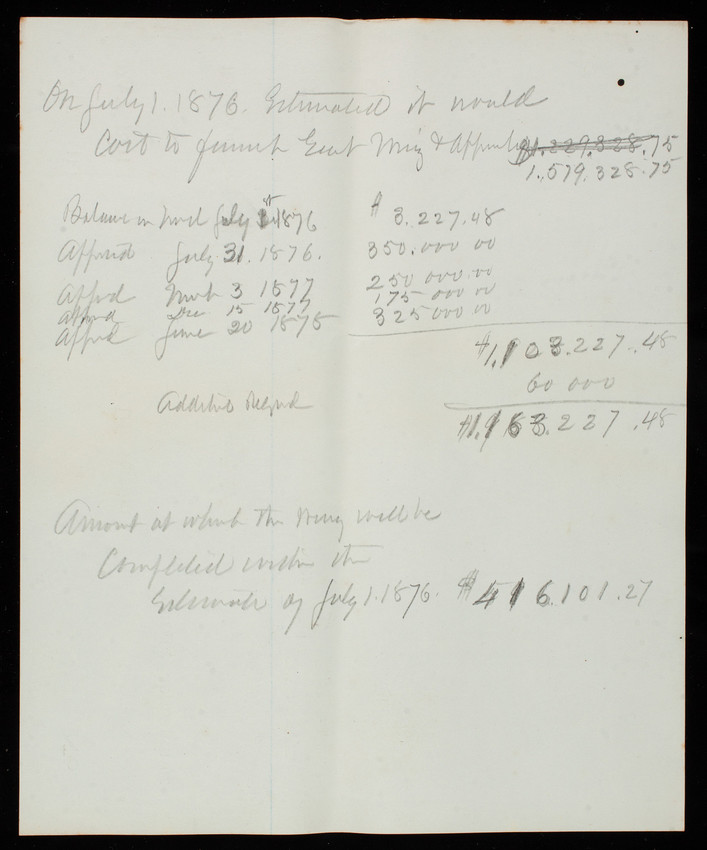 On July 1. 1876. Estimated it would
Cost to finish East Wing & Approaches $1.229.328.75
1.579.328.75
Balance on hand July 1st 1876 $ 3.227.48
Appropd July 31. 1876. 350.000 00
Appod March 3 1877 250 000.00
Appod Dec 15 1877 175 000 00
Appod June 20 1878 325 000 00
$1,103.227.48
Additional Reqrd 60 000
$1.163.227.48
Amount at which the Wing will be
Completed within the
Estimate of July 1. 1876. $416.101.27